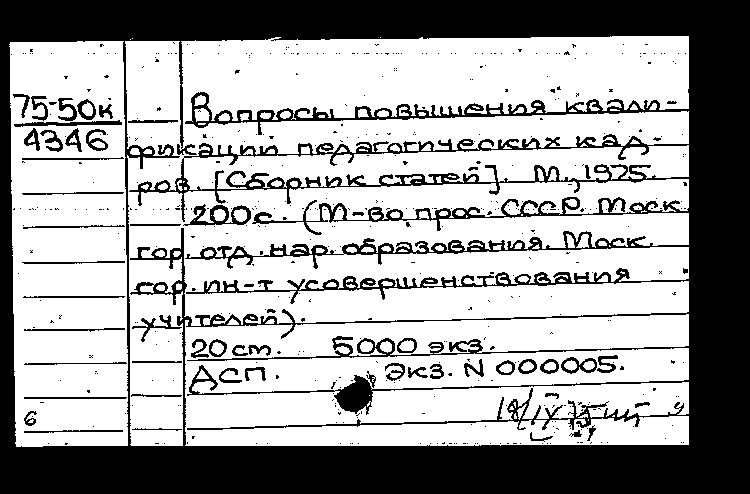 75-50к
4346
Вопросы повышения квали-
фикации педагогических кад-
ров. [Сборник статей]. М., 1975.
200с. (М-во прос. СССР. Моск.
гор. отд. нар. образования. Моск.
гор. ин-т усовершенствования
учителей).
20 ст. 5000 экз.
ДСП. Экз. N 000005.
18/IX 75
6